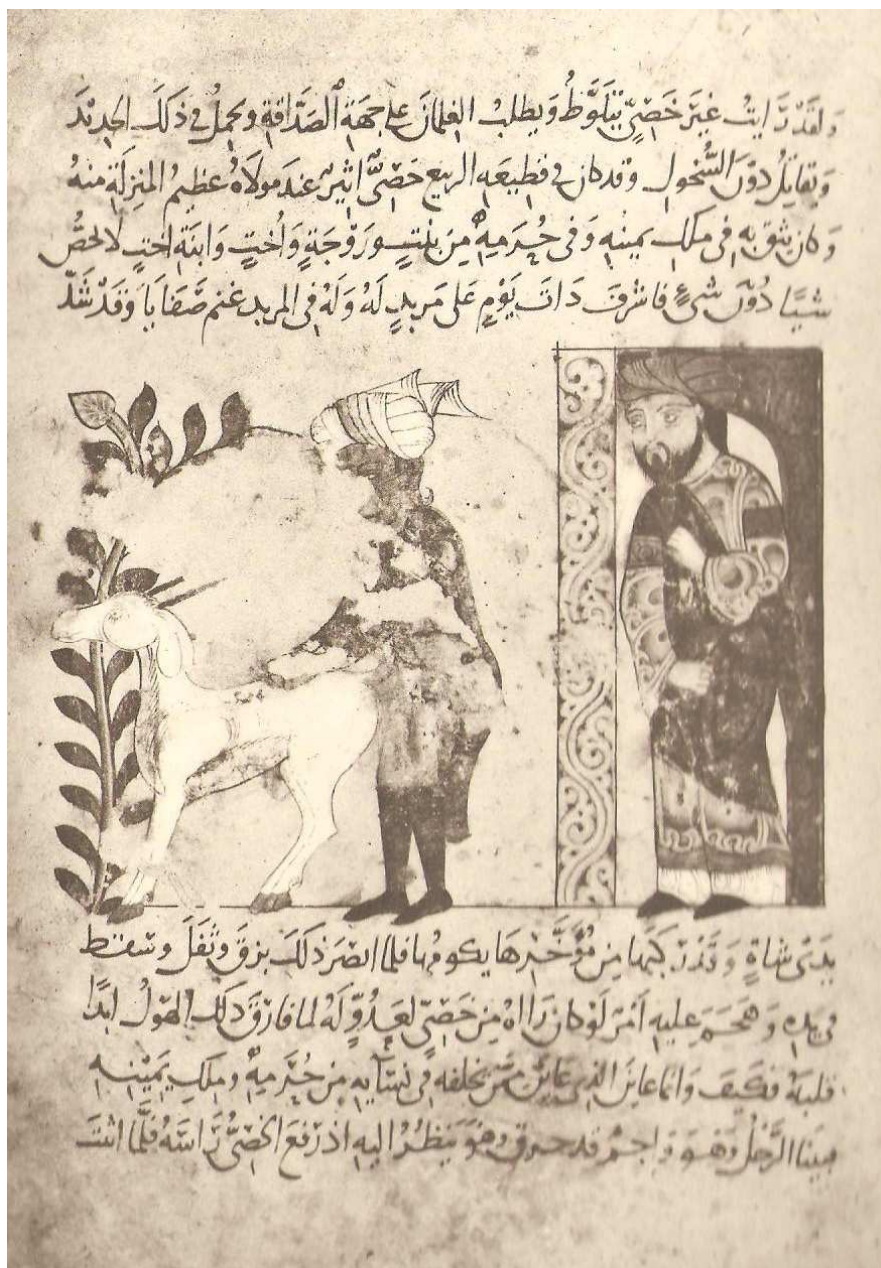 ولقَد رَايتُ غيرَ خَصِيٍّ يتَلَوَّطُ وَيطلبُ الغِلمانَ على جِهَةِ الصَّدَاقةِ ويحمِلُ في ذلكَ الحدِيدَ
وَيُقاتِلُ دُوْنَ السُّخولِ وقد كان في قطيعَهِ الربيع خَصِيٌّ اثِيرٌ عندَ مولَاهُ عظيمُ المنزِلَةِ منهُ
وَكان يثقُ بهِ في ملكِ يمينِهِ وَفي حُرَمِهِ مِن بنتٍ وَزَوْجَةٍ وَأُختٍ وَابنَةِ اختٍ لَا يخصُّ
شيًا دُوْنَ شيءٍ فاشرفَ ذاتَ يَوْمٍ عَلى مَربدٍ لَهُ وَلَهُ في المربد غنم صَفَايَا وَقَدْ شَدَّ
يَدَىْ شاةٍ وَقَدْ رَكبَها مِن مُؤَخَّرِهَا يكومُها فلما ابصَرَ ذلكَ بزقَ وَتفلَ وسقط
في يدِهِ وَهَجَمَ عليهِ أمرٌ لَوْ كان رَااهُ مِن خَصِيٍّ لعَدُوٍّ لَهُ لما فارَقَ ذلك الهَوْلُ ابدًا
قلبَهُ فكيفَ وَانما عاينَ الذِى عاينَ ممن يخلفه في نسَآيهِ مِن حُرَمِهِ وملكِ يَمِيْنِهِ
فبينا الرَّجُلُ وَهُوَ وَاجِمٌ قد حرق وَهُوَ يَنظُرُ اليهِ اذ رَفعَ الخَصِيُّ رَاسَهُ فلَمَّا اثبتَ